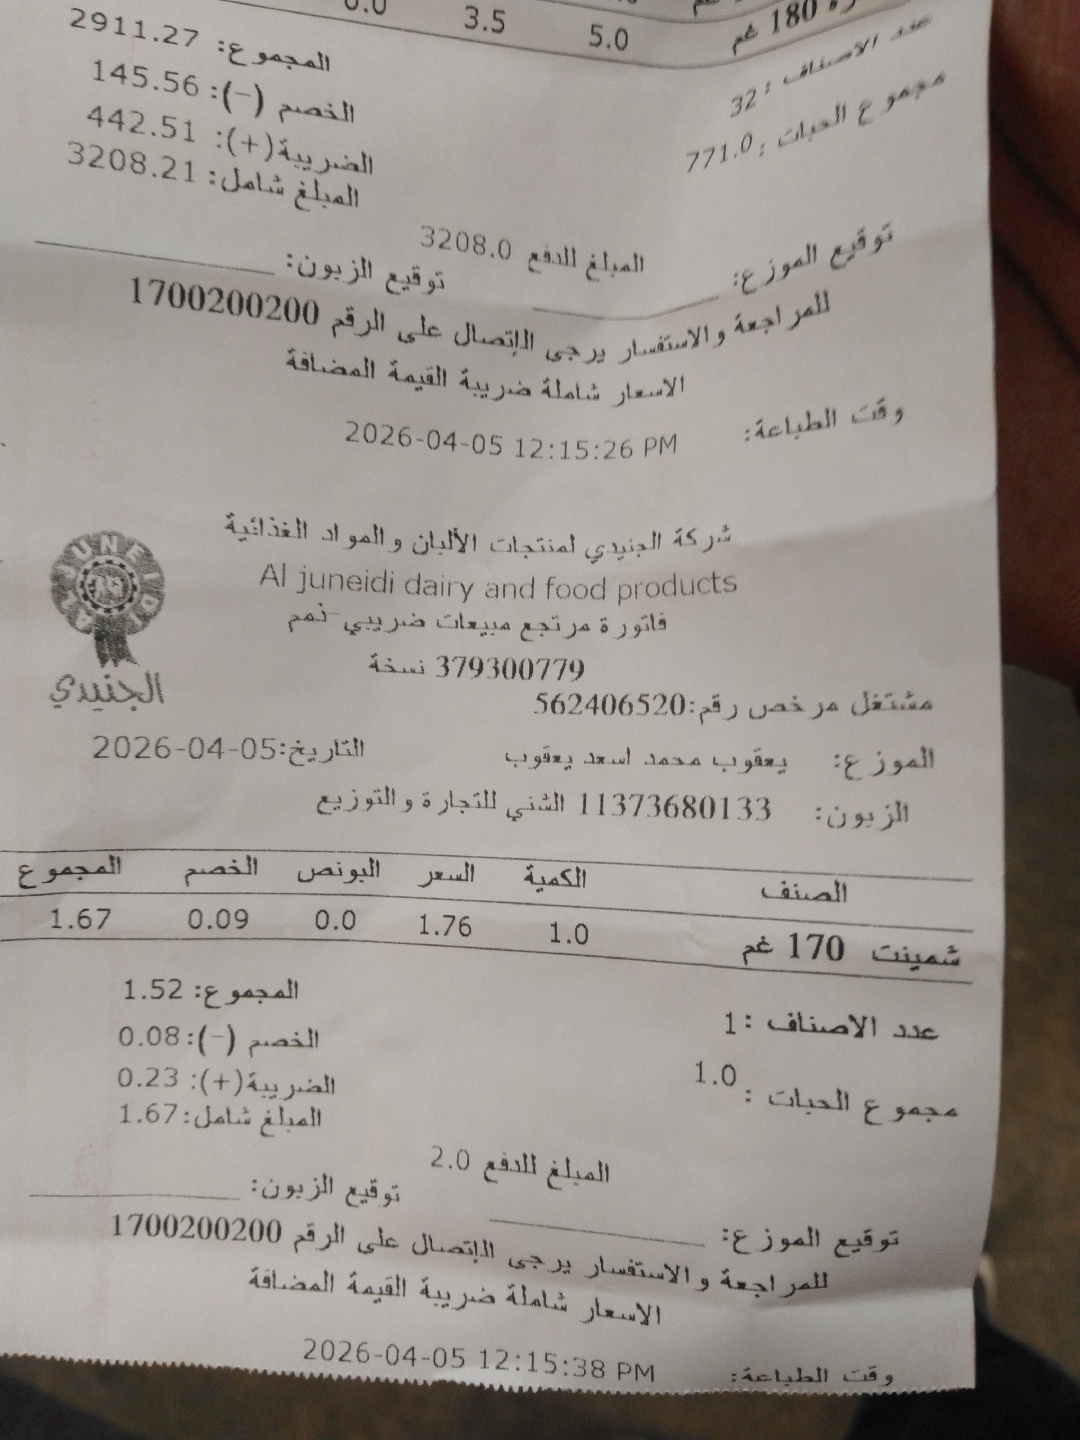 180 غم 5.0 3.5 0.0
عدد الاصناف : 32
مجموع الحبات : 771.0
المجموع: 2911.27
الخصم (-): 145.56
الضريبة(+): 442.51
المبلغ شامل: 3208.21
المبلغ للدفع 3208.0
توقيع الموزع: توقيع الزبون:
للمراجعة والاستفسار يرجى الإتصال على الرقم 1700200200
الاسعار شاملة ضريبة القيمة المضافة
وقت الطباعة: 2026-04-05 12:15:26 PM
شركة الجنيدي لمنتجات الألبان والمواد الغذائية
Al juneidi dairy and food products
فاتورة مرتجع مبيعات ضريبي-ذمم
379300779 نسخة
AL JUNEIDI
الجنيدي
مشتغل مرخص رقم:562406520
الموزع: يعقوب محمد اسعد يعقوب التاريخ:2026-04-05
الزبون: 11373680133 الشني للتجارة والتوزيع
الصنف الكمية السعر البونص الخصم المجموع
شمينت 170 غم 1.0 1.76 0.0 0.09 1.67
عدد الاصناف :1
مجموع الحبات : 1.0
المجموع: 1.52
الخصم (-):0.08
الضريبة(+): 0.23
المبلغ شامل:1.67
المبلغ للدفع 2.0
توقيع الموزع: توقيع الزبون:
للمراجعة والاستفسار يرجى الإتصال على الرقم 1700200200
الاسعار شاملة ضريبة القيمة المضافة
وقت الطباعة: 2026-04-05 12:15:38 PM